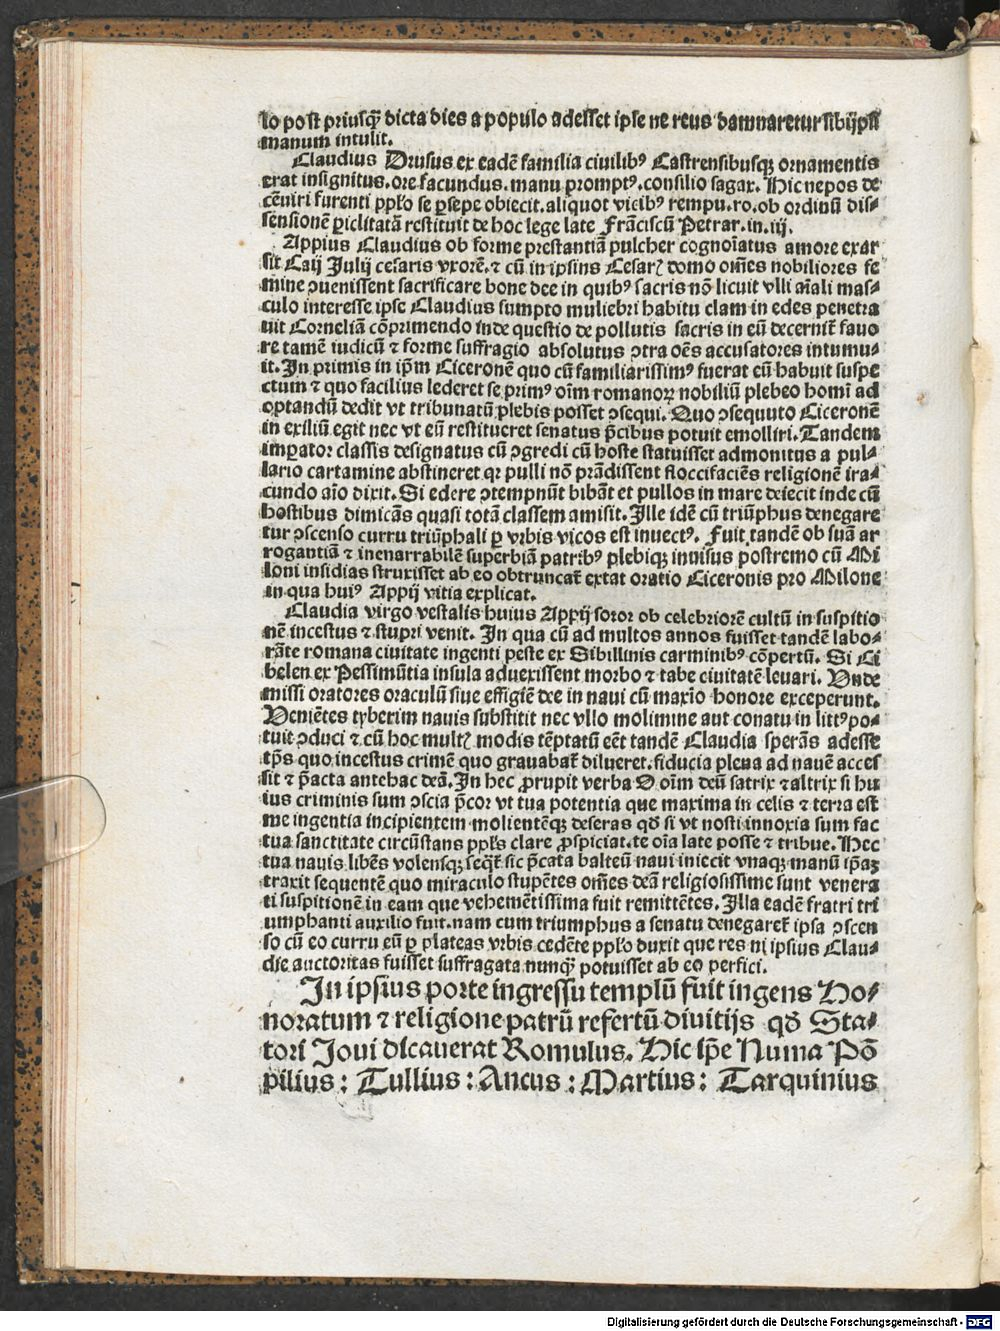 lo post priusꝙ̃ dicta dies a populo adesset ipse ne reus damnaretur sibijpsi
manum intulit.
Claudius Drusus ex eadē familia ciuilibꝰ Castrensibusqꝫ ornamentis
erat insignitus. ore facundus. manu promptꝰ. consilio sagax. Hic nepos de
cēuiri furenti ppl'o se ꝑsepe obiecit. aliquot vicibꝰ rempu. ro. ob ordinū dis⸗
sensionē ꝑiclitatā restituit de hoc lege late Frāciscū Petrar. in. iij.
Appius Claudius ob forme prestantiā pulcher cognoīatus amore exar
sit Caij Julij cesaris vxorē. ⁊ cū in ipsius Cesarꝭ domo om̄es nobiliores fe
mine ꝯuenissent sacrificare bone dee in quibꝰ sacris nō licuit vlli aīali mas⸗
culo interesse ipse Claudius sumpto muliebri habitu clam in edes penetra
uit Corneliā cōprimendo inde questio de pollutis sacris in eū decernit᷑ fauo
re tamē iudicū ⁊ forme suffragio absolutus ꝯtra oēs accusatores intumu⸗
it. In primis in ip̄m Ciceronē quo cū familiarissimꝰ fuerat eū habuit suspe
ctum ⁊ quo facilius lederet se primꝰ oīm romanoꝝ nobiliū plebeo homī ad
optandū dedit vt tribunatū plebis posset ꝯsequi. Quo ꝯsequuto Ciceronē
in exiliū egit nec vt eū restitueret senatus p̄cibus potuit emolliri. Tandem
imꝑator classis designatus cū ꝯgredi cū hoste statuisset admonitus a pul⸗
lario cartamine abstineret qꝛ pulli nō prādissent floccifaciēs religionē ira⸗
cundo aīo dixit. Si edere ꝯtempnūt bibāt et pullos in mare deiecit inde cū
hostibus dimicās quasi totā classem amisit. Ille idē cū triūphus denegare
tur ꝯscenso curru triūphali ꝑ vrbis vicos est inuectꝰ. Fuit tandē ob suā ar
rogantiā ⁊ inenarrabilē superbiā patribꝰ plebiqꝫ inuisus postremo cū Mi
loni insidias struxisset ab eo obtruncat᷑ extat oratio Ciceronis pro Milone
in qua huiꝰ Appij vitia explicat.
Claudia virgo vestalis huius Appij soror ob celebriorē cultū in suspitio
nē incestus ⁊ stupri venit. In qua cū ad multos annos fuisset tandē labo⸗
rāte romana ciuitate ingenti peste ex Sibillinis carminibꝰ cōpertū. Si Ci
belen ex Pessimūtia insula aduexissent morbo ⁊ tabe ciuitatē leuari. Vnde
missi oratores oraculū siue effigiē dee in naui cū maxīo honore exceperunt.
Veniētes tyberim nauis substitit nec vllo molimine aut conatu in littꝰ po⸗
tuit ꝯduci ⁊ cū hoc multꝭ modis tēptatū eēt tandē Claudia sperās adesse
tp̄s quo incestus crimē quo grauabat᷑ dilueret. fiducia plena ad nauē acces
sit ⁊ p̄acta antehac deā. In hec ꝓrupit verba O oīm deū satrix ⁊ altrix si hu
ius criminis sum ꝯscia p̄cor vt tua potentia que maxima in celis ⁊ terra est
me ingentia incipientem molientēqꝫ deseras qđ si vt nosti innoxia sum fac
tua sanctitate circūstans ppl's clare ꝓspiciat. te oīa late posse ⁊ tribue. Hec
tua nauis libēs volensqꝫ seq̄t᷑ sic p̄cata balteū naui iniecit vnaqꝫ manū ip̄aꝫ
traxit sequentē quo miraculo stupētes om̄es deā religiosissime sunt venera
ti suspitionē in eam que vehemētissima fuit remittētes. Illa eadē fratri tri
umphanti auxilio fuit. nam cum triumphus a senatu denegaret᷑ ipsa ꝯscen
so cū eo curru eū ꝑ plateas vrbis cedēte ppl'o duxit que res ni ipsius Clau⸗
die auctoritas fuisset suffragata nunqꝙ̃ potuisset ab eo perfici.
In ipsius porte ingressu templū fuit ingens Ho⸗
noratum ⁊ religione patrū refertū diuitijs qđ Sta⸗
tori Joui dicauerat Romulus. Hic ip̄e Numa Pō
pilius: Tullius: Ancus: Martius: Tarquinius
Digitalisierung gefördert durch die Deutsche Forschungsgemeinschaft - DFG